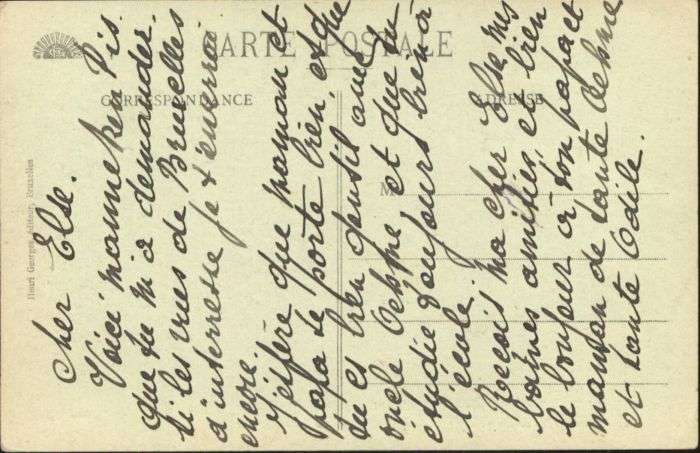 CARTE POSTALE
CORRESPONDANCE
ADRESSE
M
Henri Georges, éditeur, Bruxelles
Cher Else.
Voici manneken Pis
que tu m'a demander.
si les vues de Bruxelles
d'interresse je t'enverrai
encore.
J'éspère que maman et
papa se porte bien, et que
tu es bien gentil avec
oncle Oehme et que tu
étudie toujours bien à
l'école.
Recois ma cher Else mes
bonnes amitiés, et bien
le bonjour à ton papa et
maman de tante Oehme
et tante Odile.